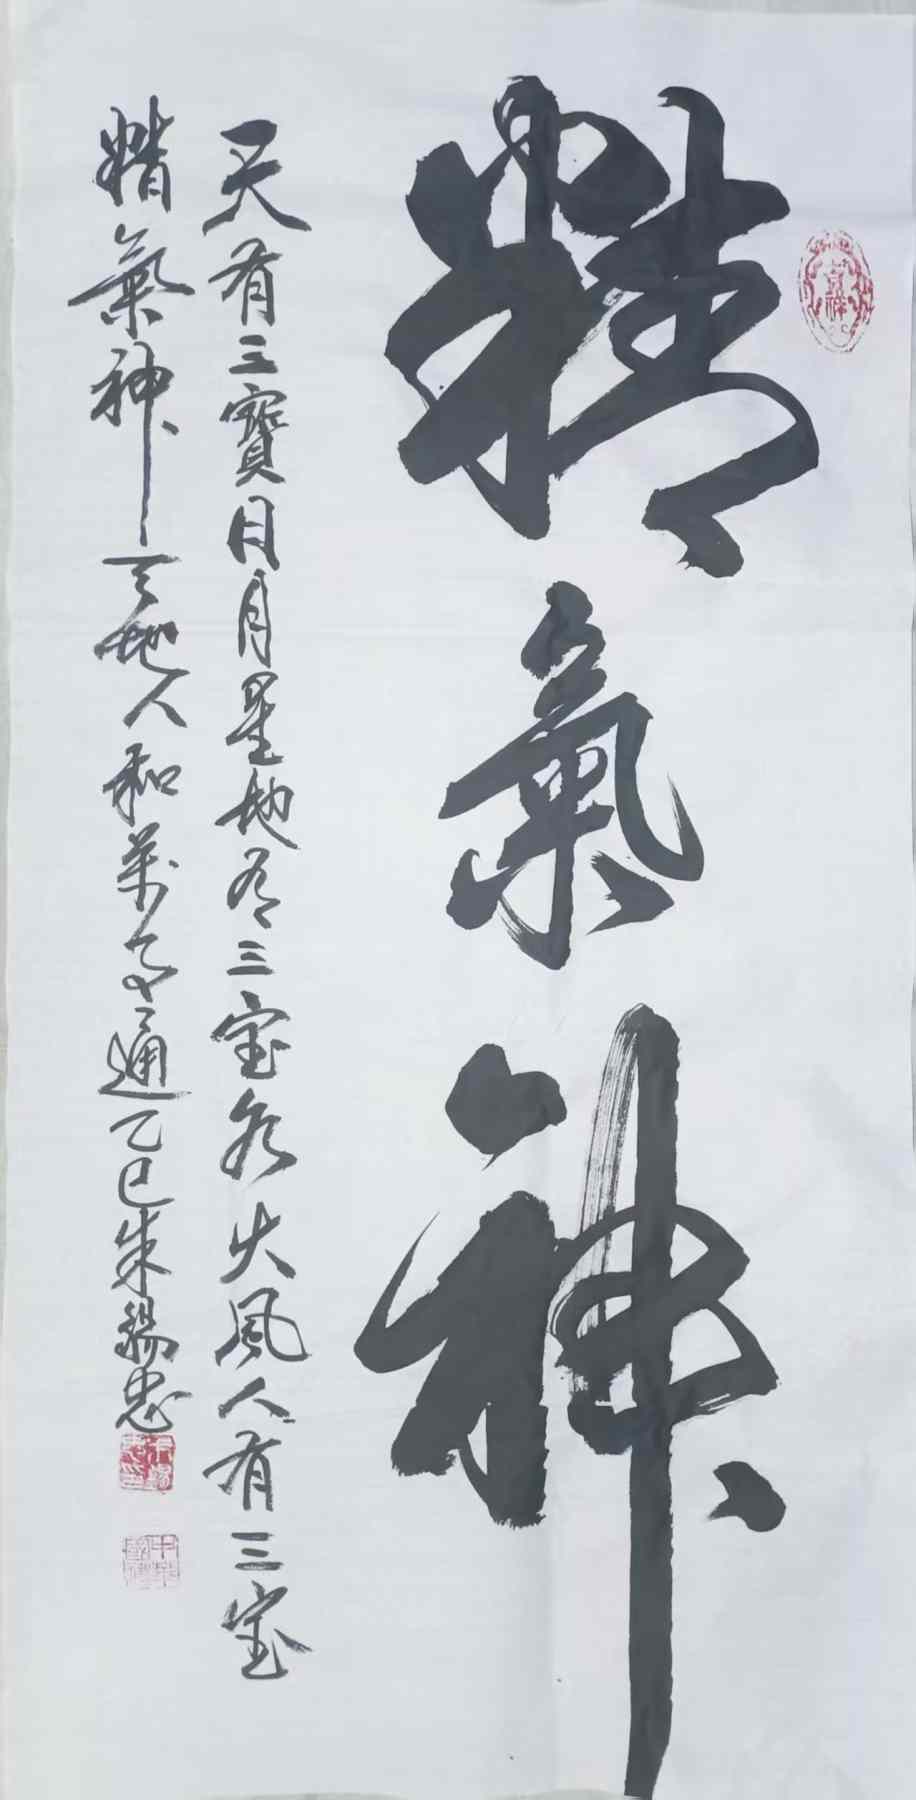 精氣神
天有三寶日月星地有三宝水火風人有三宝
精氣神天地人和萬事通乙巳朱錫忠